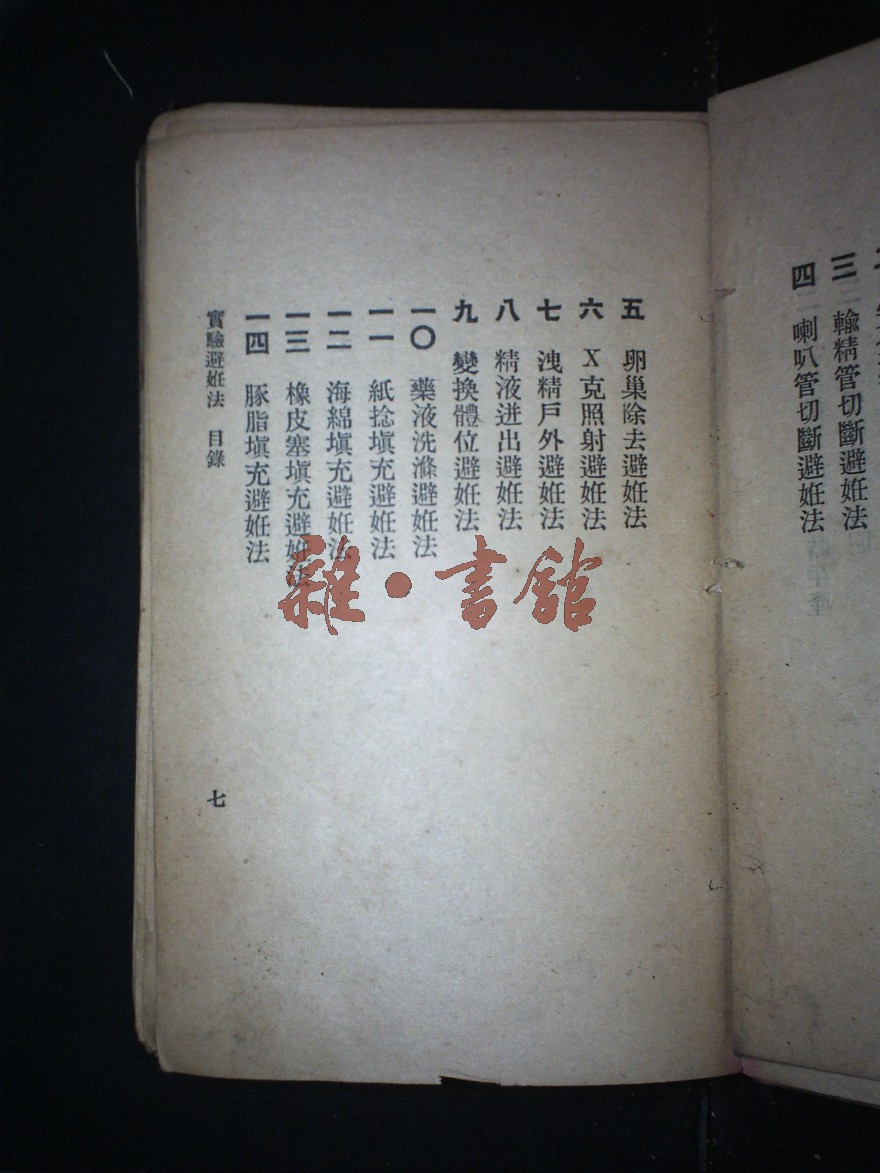 三 輸精管切斷避姙法
四 喇叭管切斷避姙法
五 卵巢除去避姙法
六 X克照射避姙法
七 洩精戶外避姙法
八 精液迸出避姙法
九 變換體位避姙法
一〇 藥液洗滌避姙法
一一 紙捻塡充避姙法
一二 海綿塡充避姙法
一三 橡皮塞塡充避姙法
一四 豚脂塡充避姙法
實驗避姙法 目錄
七
雜·書館